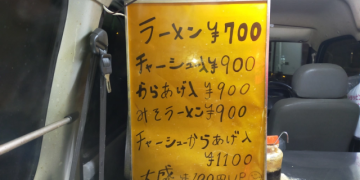 ラーメン ¥700
チャーシュー入 ¥900
からあげ入 ¥900
みそラーメン ¥900
チャーシューからあげ入
¥1100
大盛 ¥100円UP